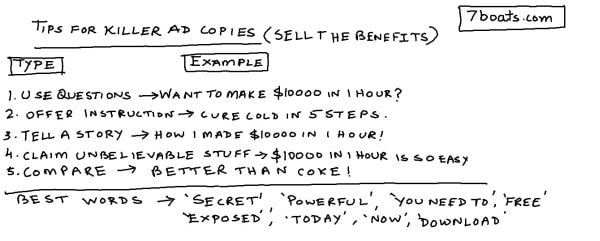 7boats.com
TIPS FOR KILLER AD COPIES (SELL THE BENEFITS)
TYPE EXAMPLE
1. USE QUESTIONS → WANT TO MAKE $10000 IN 1 HOUR?
2. OFFER INSTRUCTION → CURE COLD IN 5 STEPS.
3. TELL A STORY → HOW I MADE $10000 IN 1 HOUR!
4. CLAIM UNBELIEVABLE STUFF → $10000 IN 1 HOUR IS SO EASY
5. COMPARE → BETTER THAN COKE!
BEST WORDS → 'SECRET', 'POWERFUL', 'YOU NEED TO', 'FREE'
'EXPOSED', 'TODAY', 'NOW', 'DOWNLOAD'